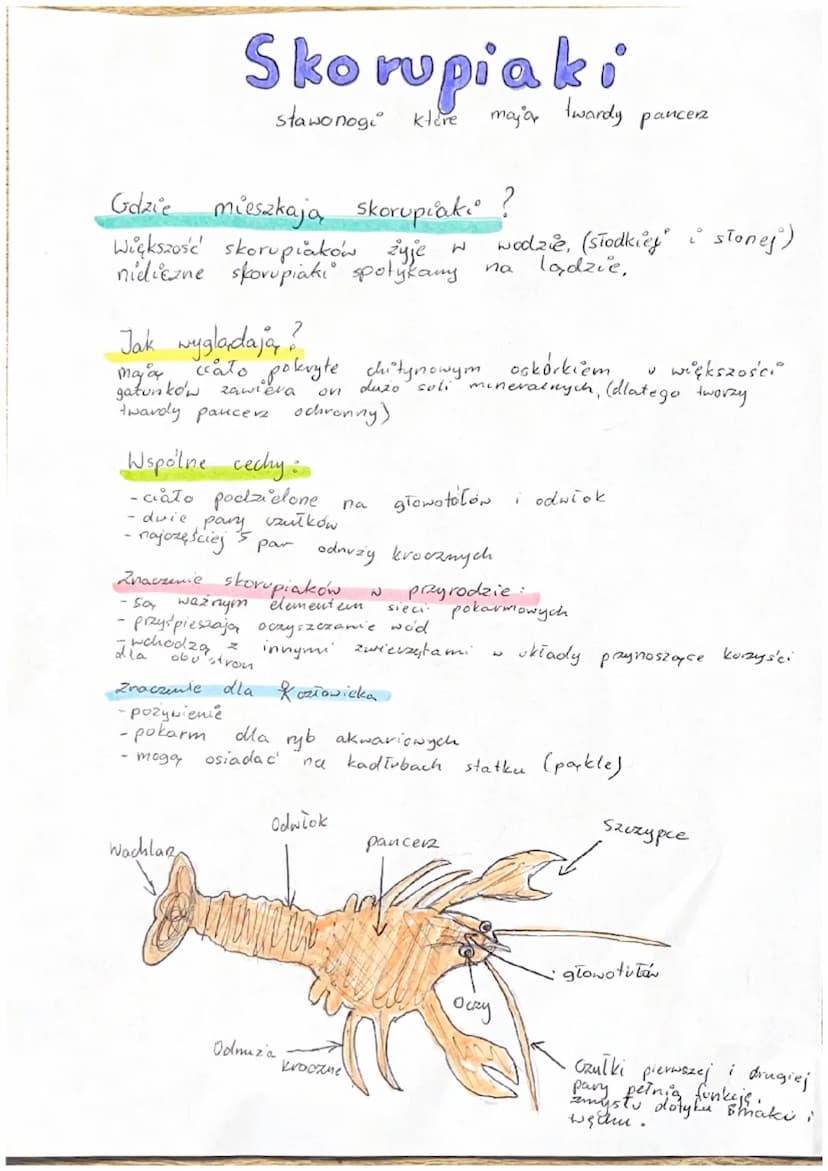 Skorupiaki
stawonogi które mają twardy pancerz
Gdzie mieszkają skorupiaki?
Większość skorupiaków żyje w wodzie, (słodkiej i słonej)
nieliczne skorupiaki spotykamy na lądzie.
Jak wyglądają?
mają ciało pokryte chitynowym oskórkiem u większości
gatunków zawiera on dużo soli mineralnych, (dlatego tworzy
twardy pancerz ochronny)
Wspólne cechy:
- ciało podzielone na głowotółów i odwłok
- dwie pary czułków
- najczęściej 5 par odnuży krocznych
Znaczenie skorupiaków w przyrodzie:
- są ważnym elementem sieci pokarmowych
- przyśpieszają oczyszczanie wód
- wchodzą z innymi zwierzętami w układy przynoszące korzyści
dla obu stron
Znaczenie dla człowieka
- pożywienie
- pokarm dla ryb akwariowych
- mogą osiadać na kadłubach statku (pąkle)
Odwłok
pancerz
Szczypce
Wachlarz
głowotułów
Oczy
Odnuża
kroczne
Czułki pierwszej i drugiej
pary pełnią funkcję.
zmysłu dotyku smaku i
węchu.